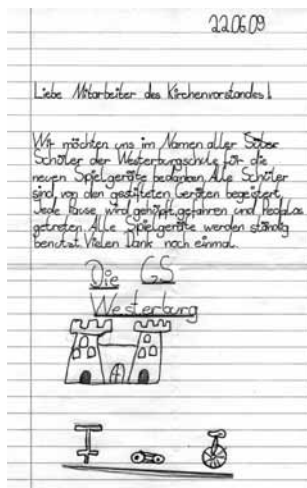 22.06.09
Liebe Mitarbeiter des Kirchenvorstandes!
Wir möchten uns im Namen aller
Schüler der Westerburgschule für die
neuen Spielgeräte bedanken. Alle Schüler
sind von den gestifteten Geräten begeistert.
Jede Pause wird gehüpft, gefahren und Pedalos
getreten. Alle Spielgeräte werden ständig
benutzt. Vielen Dank noch einmal.
Die GS
Westerburg